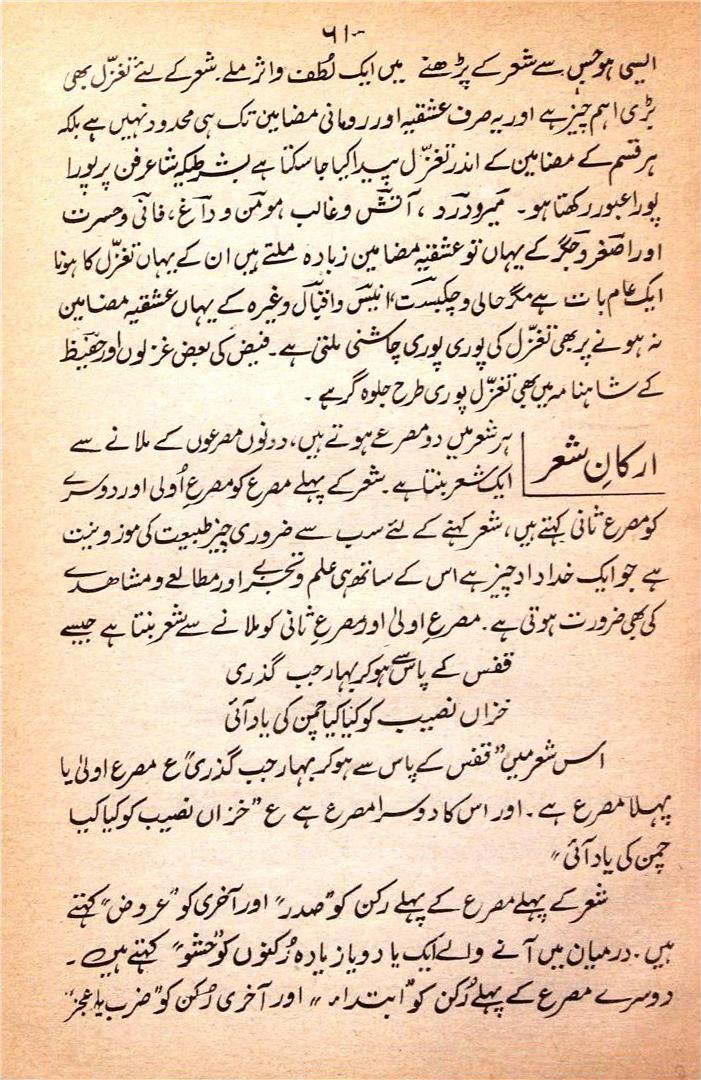 ۶۱
ایسی ہو جس سے شعر کے پڑھنے میں ایک لطف و اثر ملے۔ شعر کے لئے تغزّل بھی
بڑی اہم چیز ہے اور یہ صرف عشقیہ اور رومانی مضامین تک ہی محدود نہیں ہے بلکہ
ہر قسم کے مضامین کے اندر تغزّل پیدا کیا جا سکتا ہے بشرطیکہ شاعر فن پر پورا
پورا عبور رکھتا ہو۔ میر و درد، آتش و غالب، مومن و داغ، فانی و حسرت
اور اصغر و جگر کے یہاں تو عشقیہ مضامین زیادہ ملتے ہیں ان کے یہاں تغزّل کا ہونا
ایک عام بات ہے مگر حالی و چکبست، انیس و اقبال وغیرہ کے یہاں عشقیہ مضامین
نہ ہونے پر بھی تغزّل کی پوری پوری چاشنی ملتی ہے۔ فیض کی بعض غزلوں اور حفیظ
کے شاہنامہ میں بھی تغزّل پوری طرح جلوہ گر ہے۔
ارکانِ شعر
ہر شعر میں دو مصرع ہوتے ہیں، دونوں مصرعوں کے ملانے سے
ایک شعر بنتا ہے۔ شعر کے پہلے مصرع کو مصرعِ اُولیٰ اور دوسرے
کو مصرعِ ثانی کہتے ہیں، شعر کہنے کے لئے سب سے ضروری چیز طبیعت کی موزونیت
ہے جو ایک خداداد چیز ہے اس کے ساتھ ہی علم و تجربے اور مطالعے و مشاہدے
کی بھی ضرورت ہوتی ہے۔ مصرعِ اولیٰ اور مصرعِ ثانی کو ملانے سے شعر بنتا ہے جیسے
قفس کے پاس سے ہو کر بہار جب گذری
خزاں نصیب کو کیا کیا چمن کی یاد آئی
اس شعر میں "قفس کے پاس سے ہو کر بہار جب گذری" ع مصرع اولیٰ یا
پہلا مصرع ہے۔ اور اس کا دوسرا مصرع ہے ع "خزاں نصیب کو کیا کیا
چمن کی یاد آئی"
شعر کے پہلے مصرع کے پہلے رکن کو "صدر" اور آخری کو "عروض" کہتے
ہیں۔ درمیان میں آنے والے ایک یا دو یا زیادہ رُکنوں کو "حشو" کہتے ہیں۔
دوسرے مصرع کے پہلے رُکن کو "ابتداء" اور آخری رُکن کو "ضرب یا عجز"